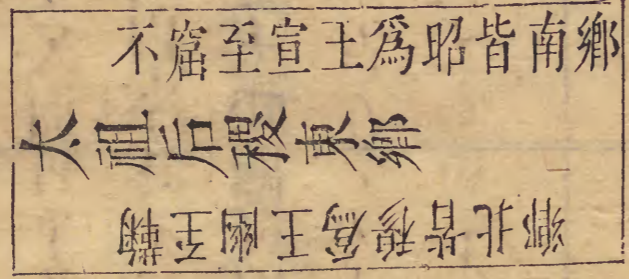 不窋至宣王爲昭皆南鄉
太祖后稷東鄉
鞠至幽王爲穆皆北鄉